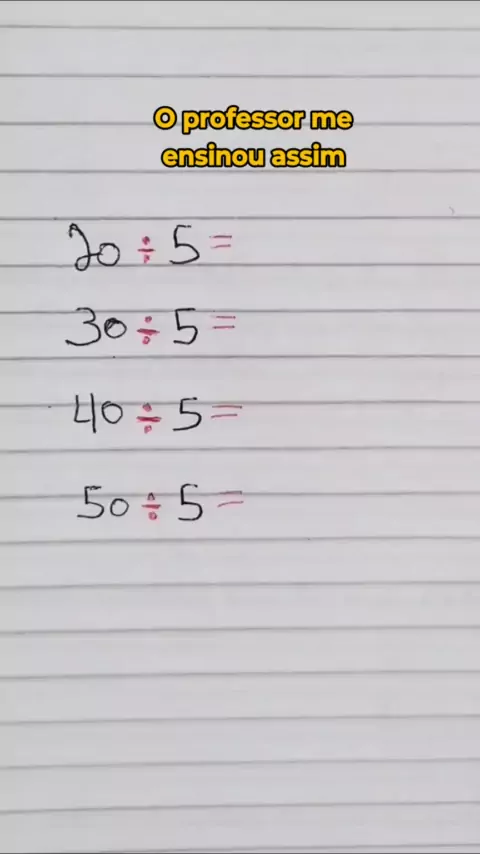 O professor me
ensinou assim
20 ÷ 5 =
30 ÷ 5 =
40 ÷ 5 =
50 ÷ 5 =